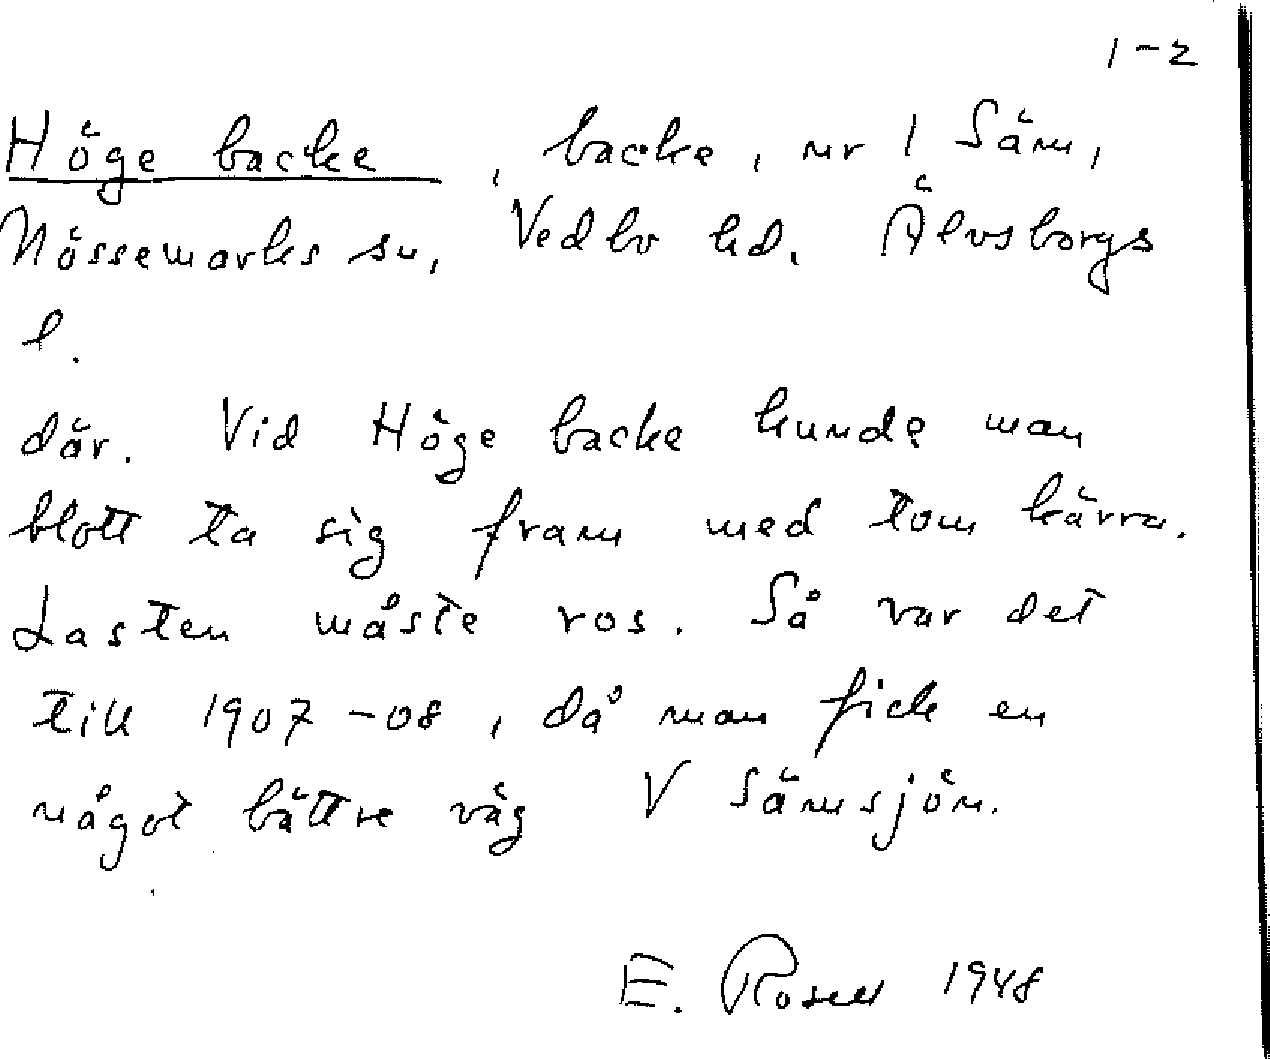 1-2
Höge backe, backe, nr 1 Säm,
Nössemarks sn, Vedbo hd. Älvsborgs
l.
där. Vid Höge backe kunde man
blott ta sig fram med tom kärra.
Lasten måste ros. Så var det
till 1907-08, då man fick en
något bättre väg V Sämsjön.
E. Rosell 1948